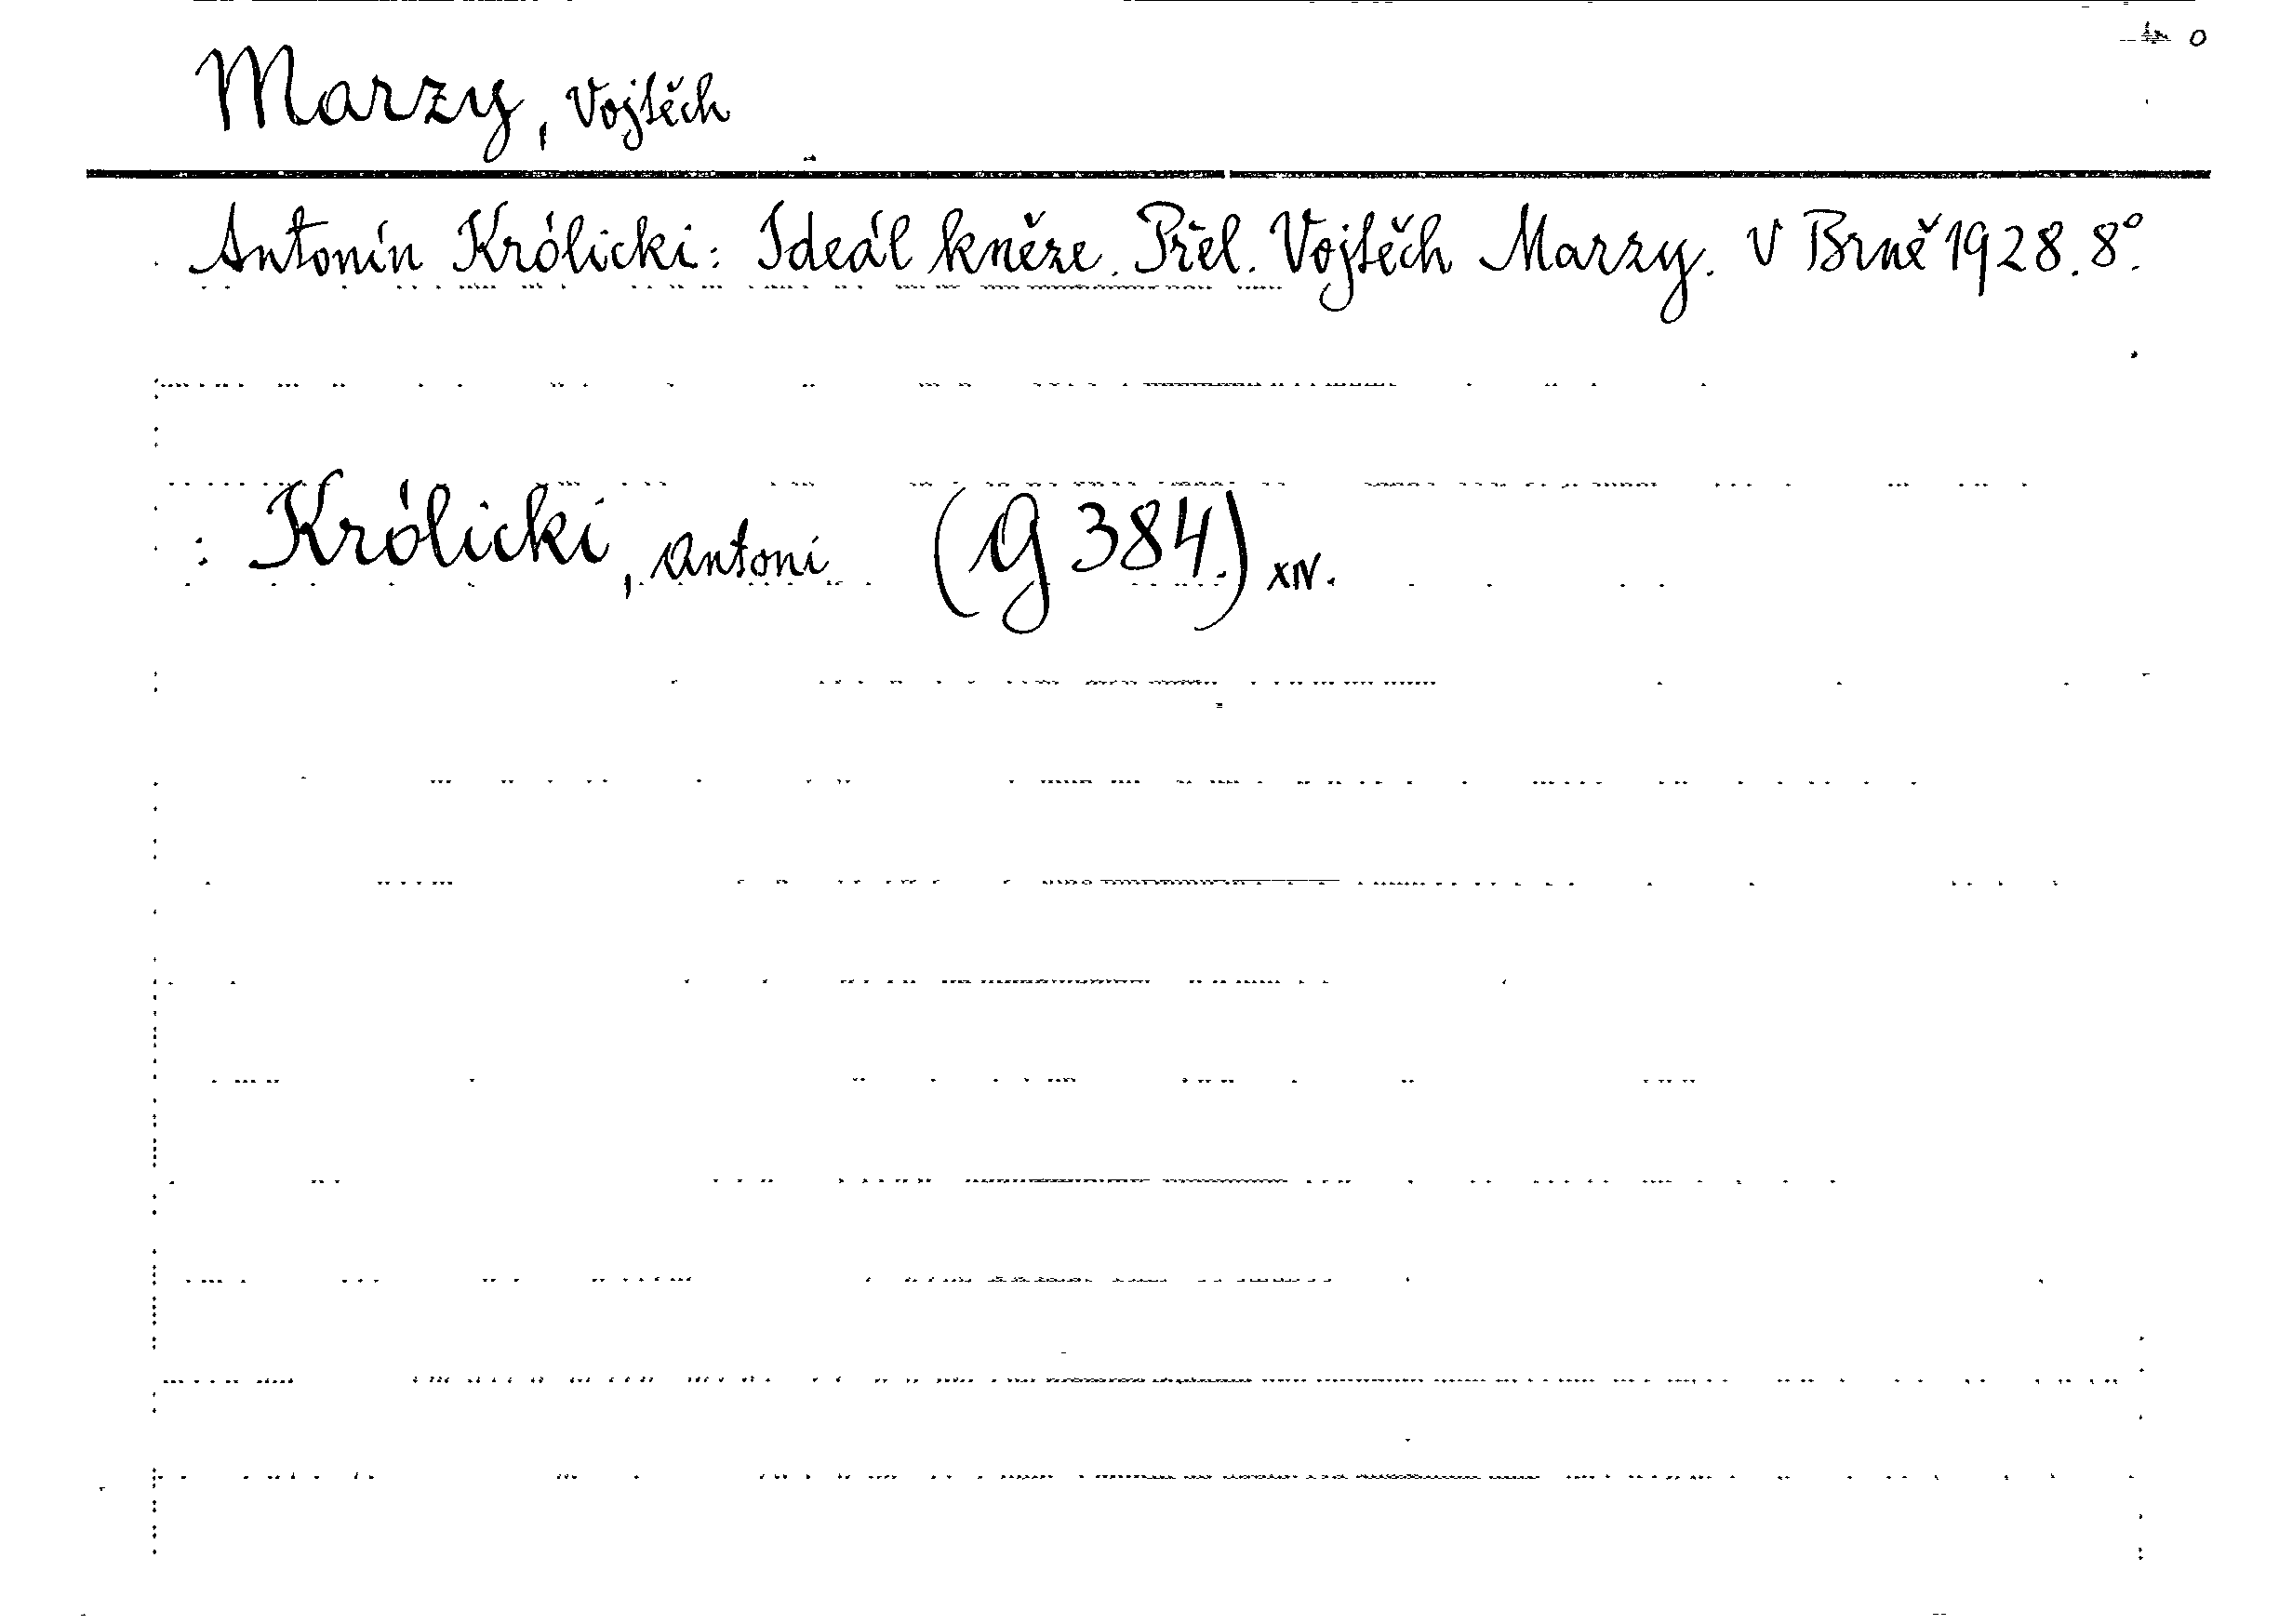 Marzy, Vojtěch
Antonín Królicki: Ideál kněze. Přel. Vojtěch Marzy. V Brně 1928. 8°.
: Królicki, Antoni (G 384.) XIV.